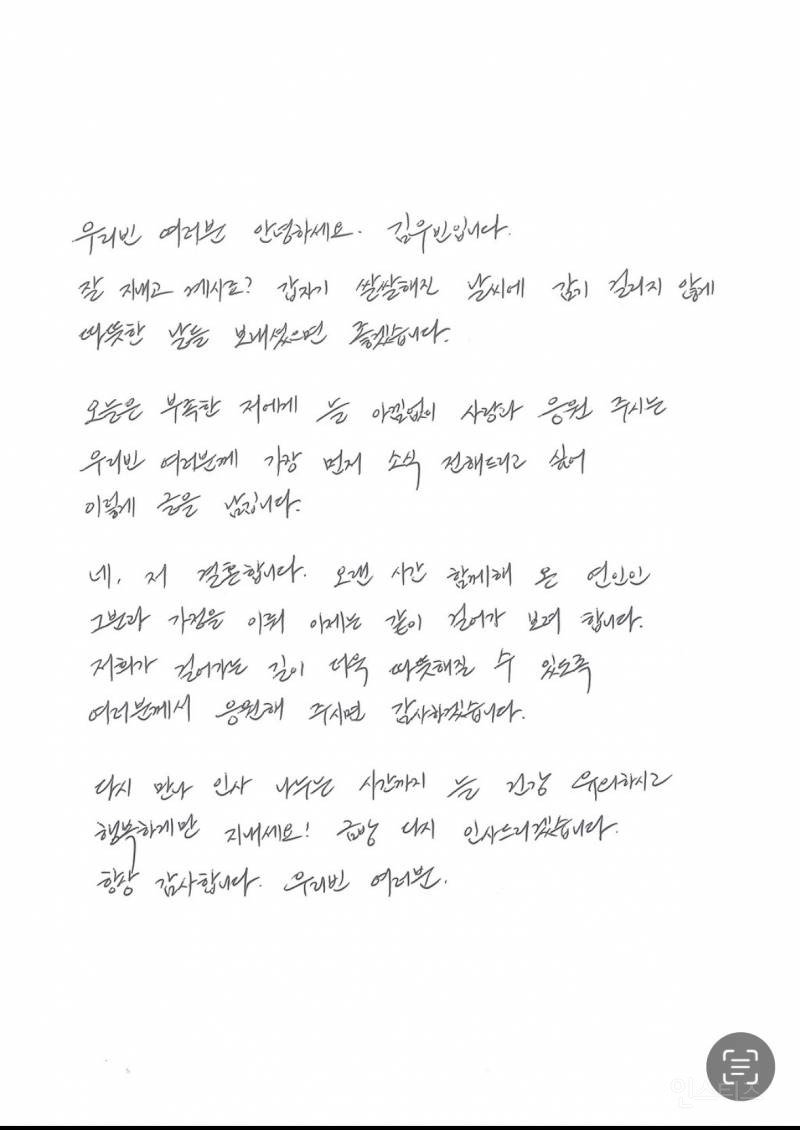 우리빈 여러분 안녕하세요. 김우빈입니다.
잘 지내고 계시죠? 갑자기 쌀쌀해진 날씨에 감기 걸리지 않게
따뜻한 날들 보내셨으면 좋겠습니다.
오늘은 부족한 저에게 늘 아낌없이 사랑과 응원 주시는
우리빈 여러분께 가장 먼저 소식 전해드리고 싶어
이렇게 글을 남깁니다.
네, 저 결혼합니다. 오랜 시간 함께해 온 연인인
그분과 가정을 이뤄 이제는 같이 걸어가 보려 합니다.
저희가 걸어가는 길이 더욱 따뜻해질 수 있도록
여러분께서 응원해 주시면 감사하겠습니다.
다시 만나 인사 나누는 시간까지 늘 건강 유의하시고
행복하게만 지내세요! 금방 다시 인사드리겠습니다.
항상 감사합니다. 우리빈 여러분.
인스티즈